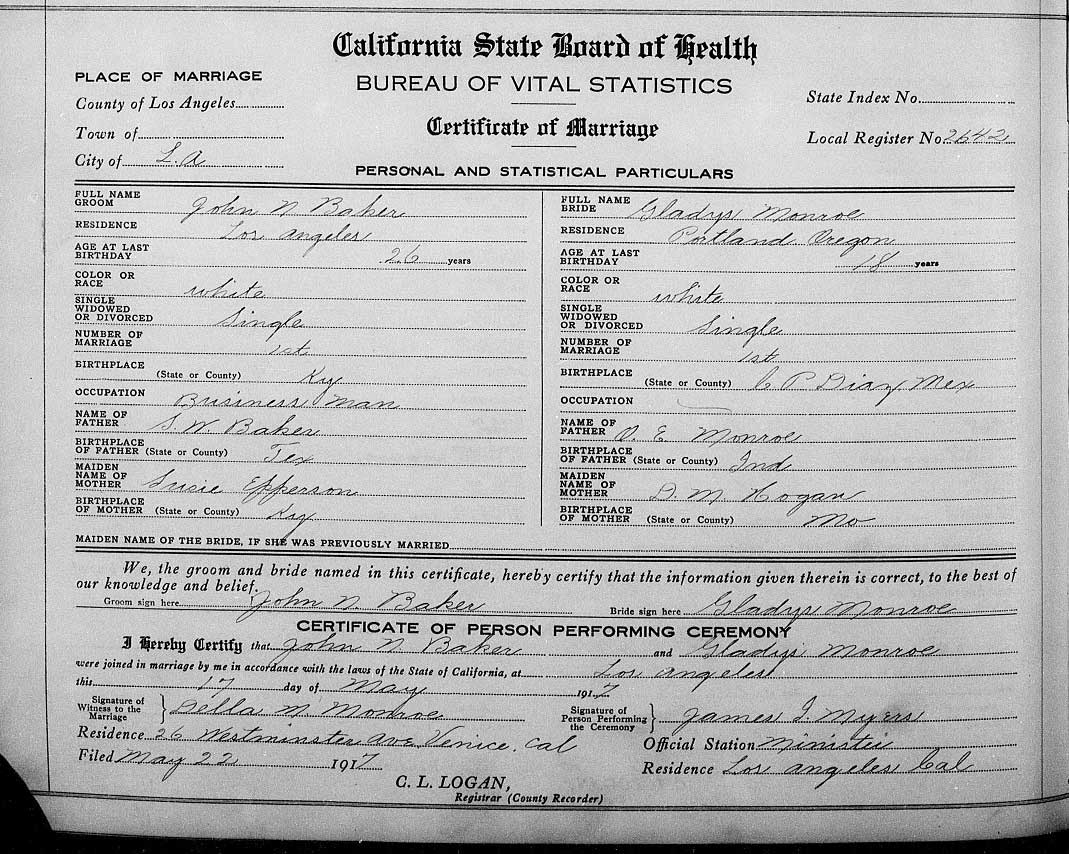 California State Board of Health
PLACE OF MARRIAGE
BUREAU OF VITAL STATISTICS
County of Los Angeles
State Index No.
Town of
Certificate of Marriage
Local Register No 2642
City of L.A
PERSONAL AND STATISTICAL PARTICULARS
FULL NAME GROOM John N Baker
RESIDENCE Los Angeles
AGE AT LAST BIRTHDAY 26 years
COLOR OR RACE white
SINGLE WIDOWED OR DIVORCED Single
NUMBER OF MARRIAGE 1st
BIRTHPLACE (State or County) Ky
OCCUPATION Business man
NAME OF FATHER S. W. Baker
BIRTHPLACE OF FATHER (State or County) Tex
MAIDEN NAME OF MOTHER Susie Epperson
BIRTHPLACE OF MOTHER (State or County) Ky
FULL NAME BRIDE Gladys Monroe
RESIDENCE Portland Oregon
AGE AT LAST BIRTHDAY 18 years
COLOR OR RACE white
SINGLE WIDOWED OR DIVORCED Single
NUMBER OF MARRIAGE 1st
BIRTHPLACE (State or County) C P Diaz Mex
OCCUPATION
NAME OF FATHER O. E. Monroe
BIRTHPLACE OF FATHER (State or County) Ind
MAIDEN NAME OF MOTHER D. M. Hogan
BIRTHPLACE OF MOTHER (State or County) Mo
MAIDEN NAME OF THE BRIDE, IF SHE WAS PREVIOUSLY MARRIED
We, the groom and bride named in this certificate, hereby certify that the information given therein is correct, to the best of
our knowledge and belief.
Groom sign here John N. Baker Bride sign here Gladys Monroe
CERTIFICATE OF PERSON PERFORMING CEREMONY
I Hereby Certify that John N Baker and Gladys Monroe
were joined in marriage by me in accordance with the laws of the State of California, at Los Angeles
this 17 day of May 1917
Signature of Witness to the Marriage } Della M Monroe
Signature of Person Performing the Ceremony } James I. Myers
Residence 26 Westminster Ave Venice, Cal
Official Station Minister
Filed May 22 1917
Residence Los Angeles Cal
C. L. LOGAN,
Registrar (County Recorder)